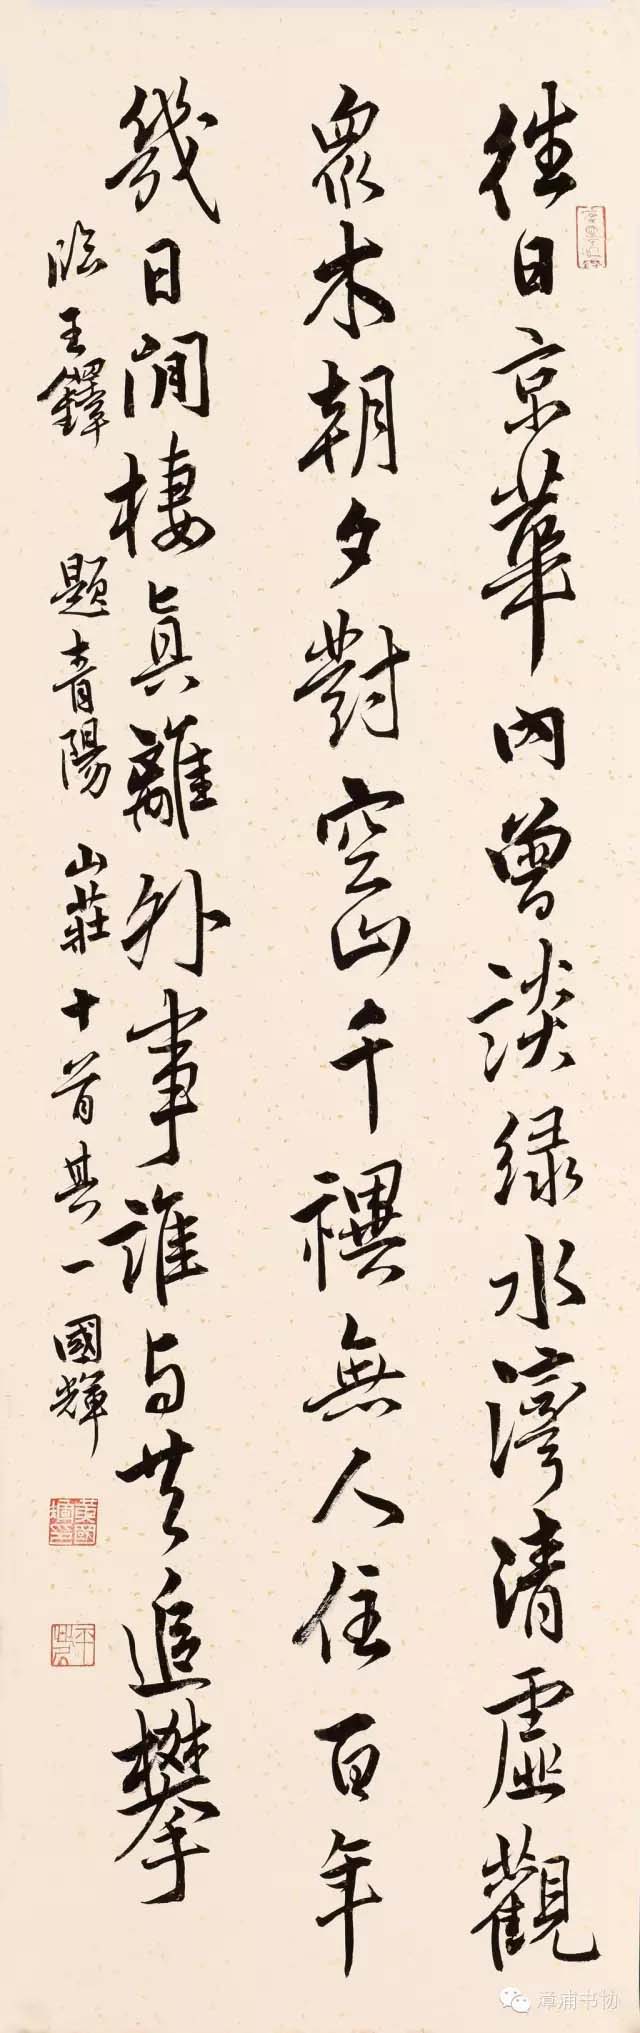 往日京華內曾談綠水灣清虛觀
眾木朝夕對空山千禩無人住百年
幾日閒棲真離外事誰与共追攀
臨王鐸 題青陽山莊十首其一 國輝
黃國輝印
漳浦书协